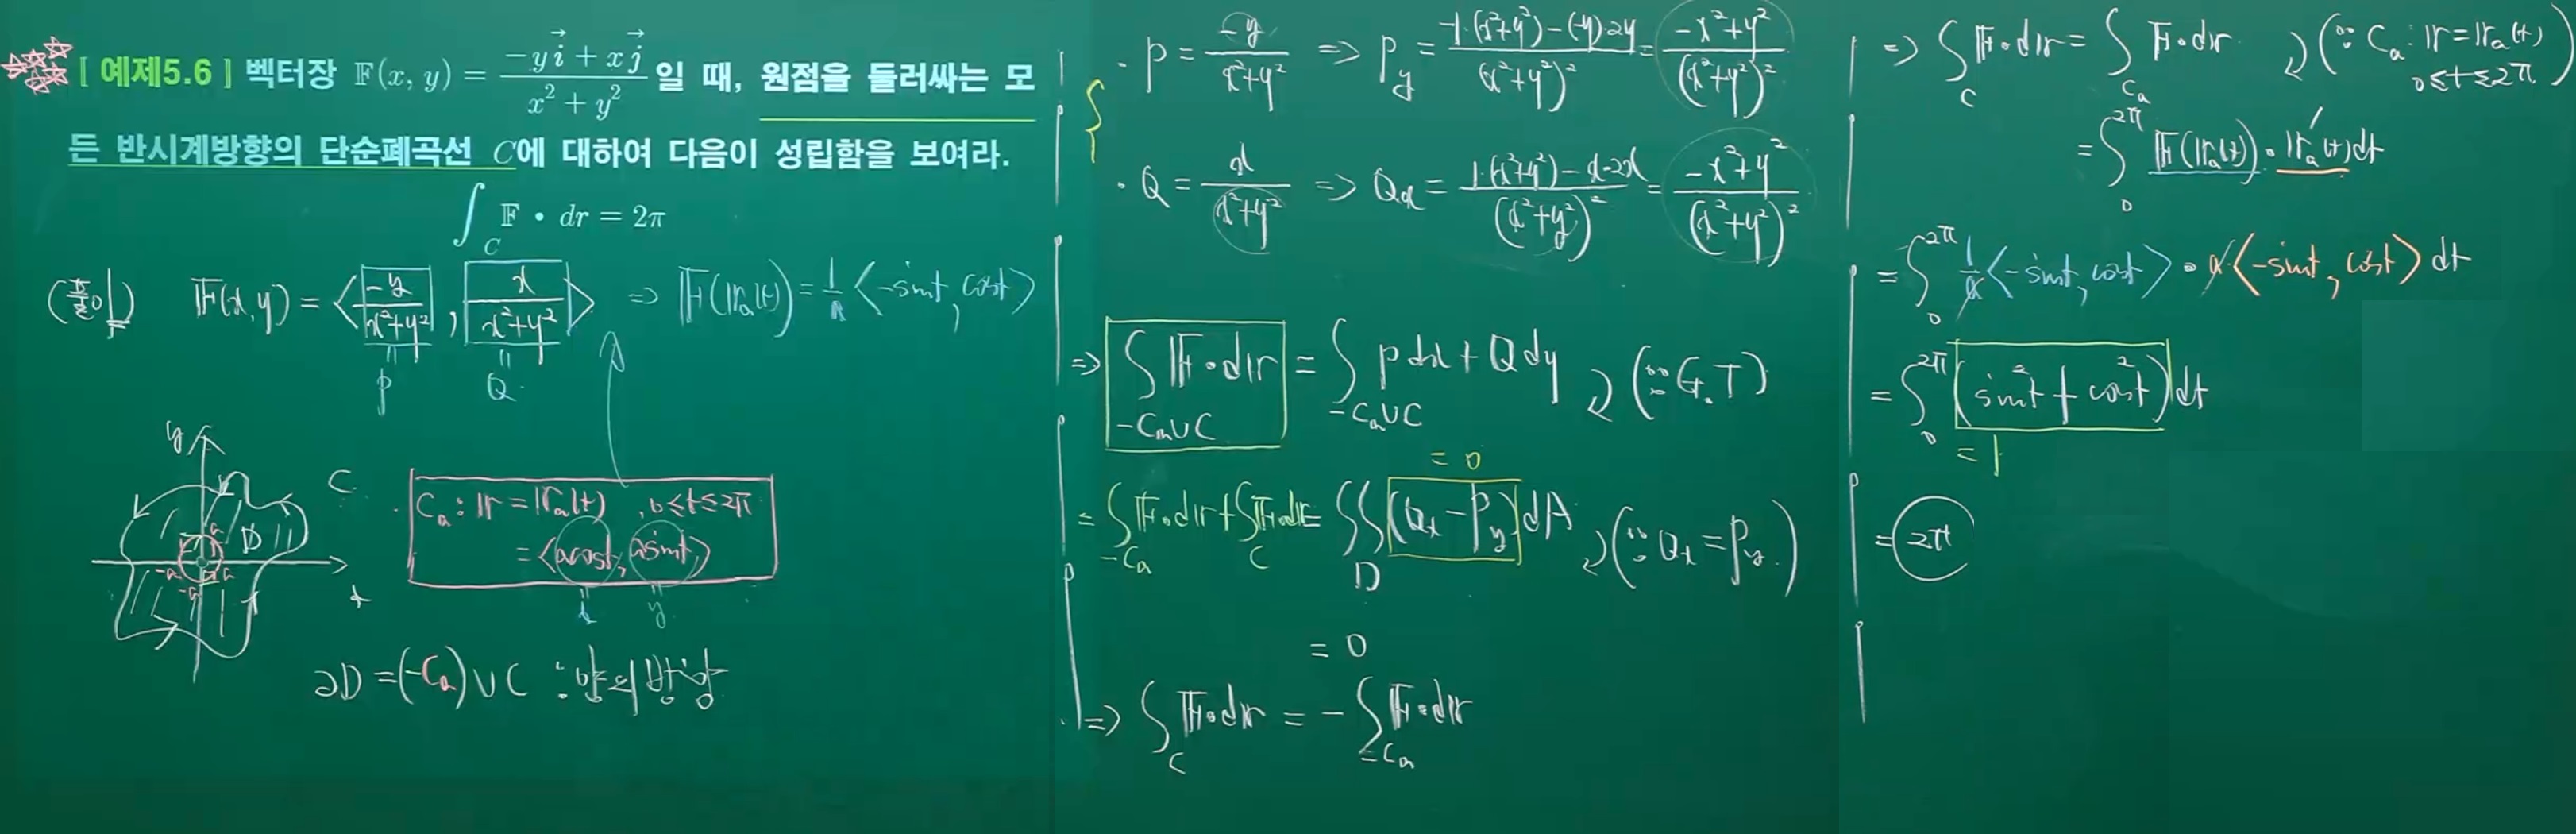 [ 예제5.6 ] 벡터장 𝔽(x, y) = (-y i⃗ + x j⃗)/(x² + y²) 일 때, 원점을 둘러싸는 모
든 반시계방향의 단순폐곡선 C에 대하여 다음이 성립함을 보여라.
∫_C 𝔽 • dr = 2π
(풀이) 𝔽(x,y) = <-y/(x²+y²), x/(x²+y²)> ⇒ 𝔽(𝕣ₐ(t)) = 1/a <-sint, cost>
= P
= Q
y
C
D
a
-a
a
-a
x
Cₐ : 𝕣 = 𝕣ₐ(t) , 0≤t≤2π
= <acost, asint>
= x
= y
∂D = (-Cₐ)∪C : 양의 방향
· P = -y/(x²+y²) ⇒ P_y = (-1·(x²+y²)-(-y)·2y)/(x²+y²)² = (-x²+y²)/(x²+y²)²
· Q = x/(x²+y²) ⇒ Q_x = (1·(x²+y²)-x·2x)/(x²+y²)² = (-x²+y²)/(x²+y²)²
⇒ ∫_{-Cₐ∪C} 𝔽·d𝕣 = ∫_{-Cₐ∪C} Pdx + Qdy (∵ G.T)
= 0
= ∫_{-Cₐ} 𝔽·d𝕣 + ∫_C 𝔽·d𝕣 = ∬_D (Q_x - P_y) dA (∵ Q_x = P_y)
= 0
⇒ ∫_C 𝔽·d𝕣 = - ∫_{-Cₐ} 𝔽·d𝕣
⇒ ∫_C 𝔽·d𝕣 = ∫_{Cₐ} 𝔽·d𝕣 (∵ Cₐ : 𝕣 = 𝕣ₐ(t)
0≤t≤2π)
= ∫₀^{2π} 𝔽(𝕣ₐ(t))·𝕣ₐ′(t)dt
= ∫₀^{2π} 1/a <-sint, cost> · a <-sint, cost> dt
= ∫₀^{2π} (sin²t + cos²t) dt
= 1
= 2π